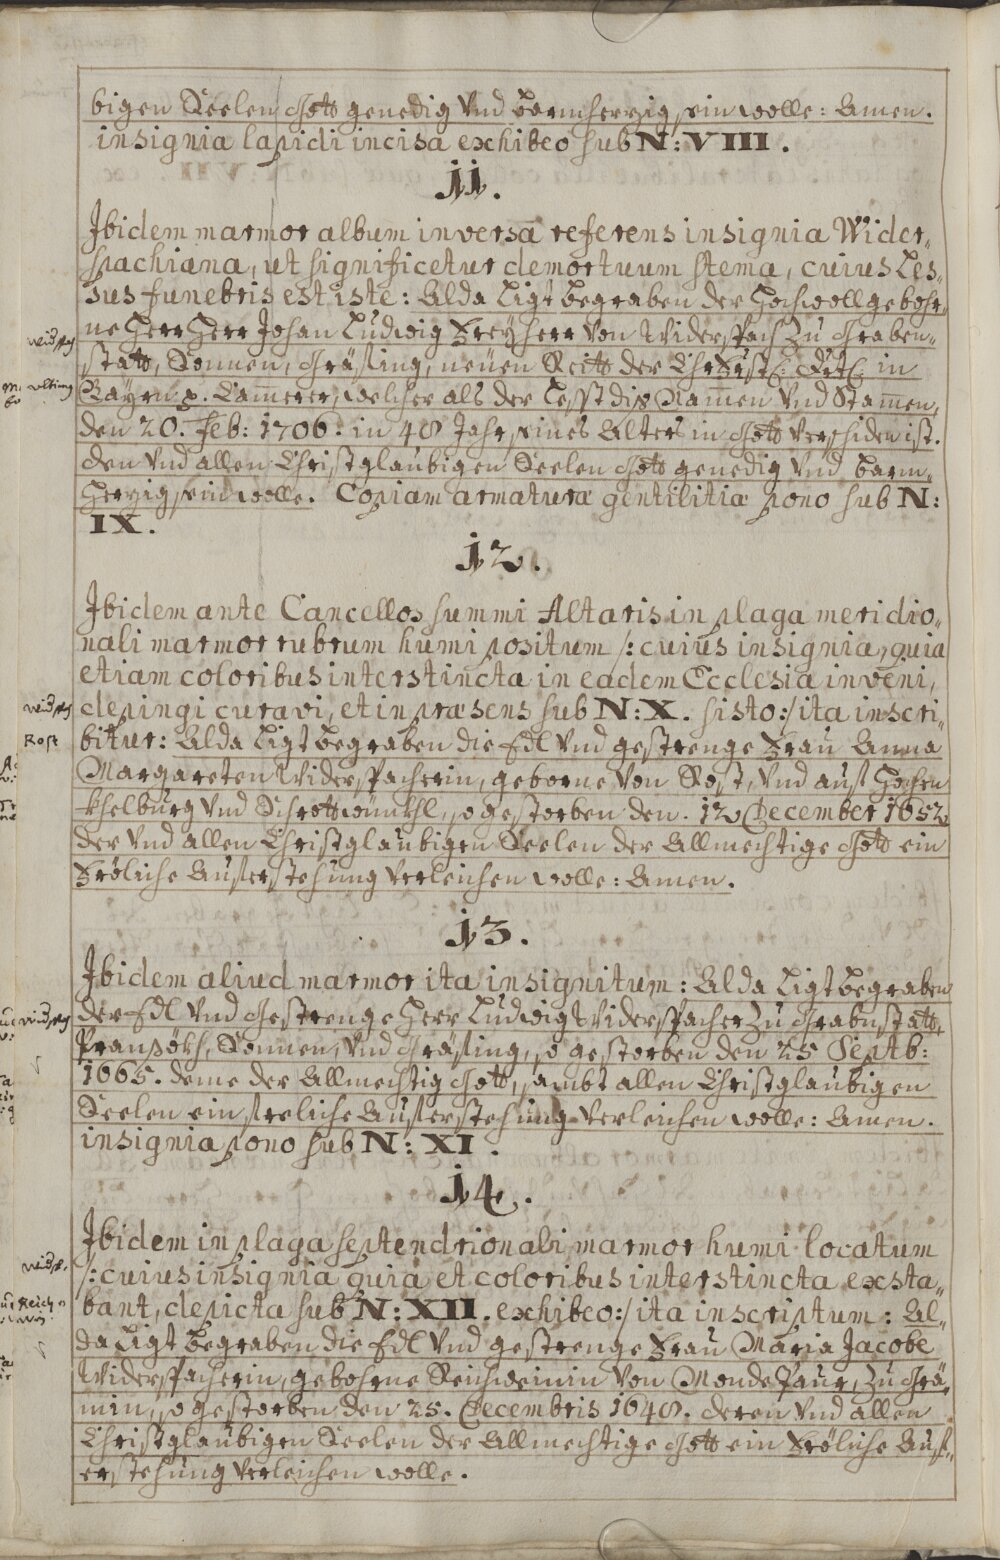 bigen Seelen Gott genedig Vnd barmherzig sein wolle: Amen.
insignia lapidi incisa exhibeo sub N: VIII.
11.
Ibidem marmor album inversa referens insignia Wider„
spachiana, ut significetur demortuum stema, cuius Les„
sus funebris est iste: Alda Ligt begraben der Hochwollgebohr„
ne Herr Herr Johan Ludwig Freyherr Von Widerspach Zu Graben„
statt, Sonnen, Gräßing, neüen
in
Bayrn p. Cam̄erer, welcher als der Lesst diß Nam̄en Vnd Stam̄en,
den 20. Feb: 1706. in 48 Jahr seines Alters in Gott Verschiden ist.
dem Vnd allen Christglaubigen Seelen Gott genedig Vnd barm„
herzig sein wolle. Copiam armaturæ gentilitiæ pono sub N:
IX.
12.
Ibidem ante Cancellos summi Altaris in plaga meridio„
nali marmor rubrum humi positum /: cuius insignia, quia
etiam coloribus interstincta in eadem Ecclesia inveni,
depingi curavi, et in præsens sub N: X. sisto:/ ita inscri„
bitur: Alda Ligt begraben die Edl Vnd gestrenge Frau Anna
Margareten Widerspacherin, geborne Von Rost, Vnd auß Hochen
khelburg Vnd Schrottwinkhl, so gestorben den. 12 December 1652
der Vnd allen Christglaubigen Seelen der Allmechtige Gott ein
Fröliche Aufferstehung Verleichen wolle: Amen.
13.
Ibidem aliud marmor ita insignitum: Alda Ligt begraben
der Edl Vnd Gestrenge Herr Ludwig Widerspacher Zu Grabnstatt,
Sonnen, Vnd Gräßing, so gestorben den 25 Septb:
1665. deme der Allmechtig Gott, sambt allen Christglaubigen
Seelen ein freliche Aufferstehung Verleichen wolle: Amen.
insignia pono sub N: XI.
14.
Ibidem in plaga septendrionali marmor humi locatum
/: cuius insignia quia et coloribus interstincta exsta„
bant, depicta sub N: XII. exhibeo:/ ita inscriptum: Al„
da Ligt begraben die Edl Vnd gestrenge Frau Maria Jacobe
Widerspacherin, gebohrne Reichweinin Von Zu Grä„
min, so gestorben den 25. Decembris 1648. deren Vnd allen
Christglaubigen Seelen der Allmechtige Gott ein Fröliche Auff„
erstehung Verleichen wolle.
Rost